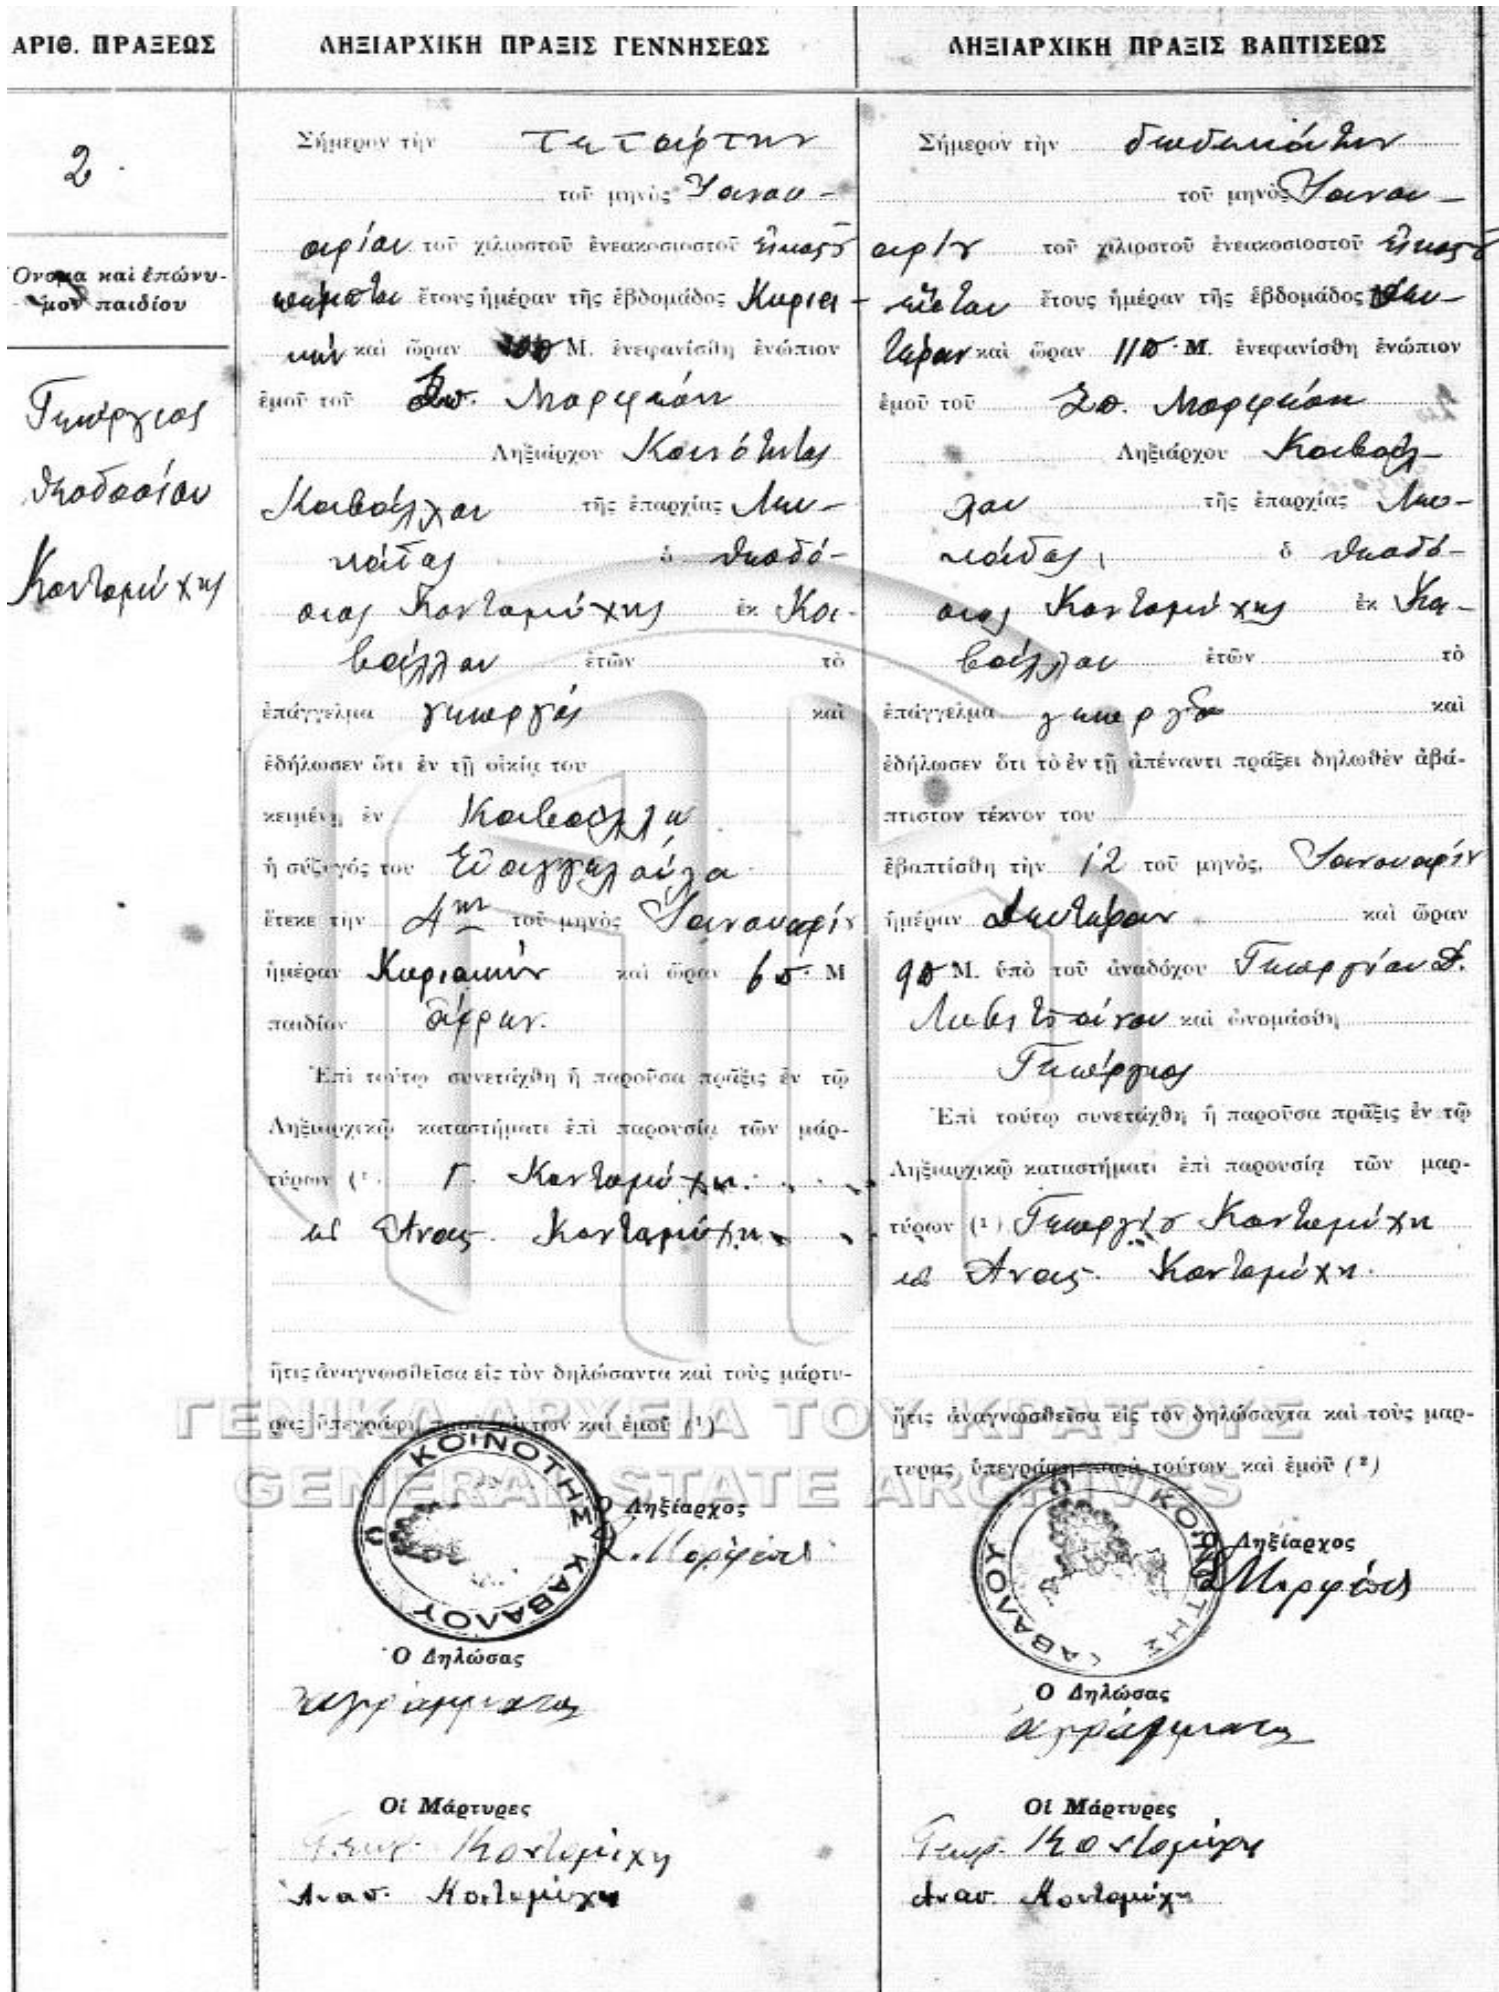 ΑΡΙΘ. ΠΡΑΞΕΩΣ
2.
Ὄνομα καὶ ἐπώνυ-
μον παιδίου
Γεώργιος
Θεοδοσίου
Κοντομίχης
ΛΗΞΙΑΡΧΙΚΗ ΠΡΑΞΙΣ ΓΕΝΝΗΣΕΩΣ
Σήμερον τὴν τετάρτην
τοῦ μηνὸς Ἰανου-
αρίου τοῦ χιλιοστοῦ ἐνεακοσιοστοῦ εἰκοστ
ἔτους ἡμέραν τῆς ἑβδομάδος Κυρια-
κήν καὶ ὥραν Μ. ἐνεφανίσθη ἐνώπιον
ἐμοῦ τοῦ Σπ. Μορφέση
Ληξιάρχου Κοινότητας
Καβάλλου τῆς ἐπαρχίας Λευ-
κάδας ὁ Θεοδό-
σιος Κοντομίχης ἐκ Κα-
βάλλου ἐτῶν τὸ
ἐπάγγελμα γεωργός καὶ
ἐδήλωσεν ὅτι ἐν τῇ οἰκίᾳ του
κειμένῃ ἐν Καβάλλῳ
ἡ σύζυγός του Εὐαγγελούλα
ἔτεκε τὴν 4ην τοῦ μηνὸς Ἰανουαρίου
ἡμέραν Κυριακήν καὶ ὥραν 6 π. Μ
παιδίον ἄρρεν.
Ἐπὶ τούτῳ συνετάχθη ἡ παροῦσα πρᾶξις ἐν τῷ
Ληξιαρχικῷ καταστήματι ἐπὶ παρουσίᾳ τῶν μάρ-
τύρων (1. Γ. Κοντομίχη
καὶ Ἀνασ. Κοντομίχη
ἥτις ἀναγνωσθεῖσα εἰς τὸν δηλώσαντα καὶ τοὺς μάρτυ-
ρας ὑπεγράφη παρὰ πάντων καὶ ἐμοῦ (1)
ΚΟΙΝΟΤΗΣ ΚΑΒΑΛΟΥ
Ὁ Ληξίαρχος
Ὁ Δηλώσας
ἀγράμματος
Οἱ Μάρτυρες
Γεωρ. Κοντομίχη
Ανασ. Κοντομίχη
ΛΗΞΙΑΡΧΙΚΗ ΠΡΑΞΙΣ ΒΑΠΤΙΣΕΩΣ
Σήμερον τὴν δωδεκάτην
τοῦ μηνὸς Ἰανου-
αρίου τοῦ χιλιοστοῦ ἐνεακοσιοστοῦ εἰκοστ
ἔτους ἡμέραν τῆς ἑβδομάδος Δευ-
τέραν καὶ ὥραν 11 π. Μ. ἐνεφανίσθη ἐνώπιον
ἐμοῦ τοῦ Σπ. Μορφέση
Ληξιάρχου Καβάλ-
λου τῆς ἐπαρχίας Λευ-
κάδας ὁ Θεοδό-
σιος Κοντομίχης ἐκ Κα-
βάλλου ἐτῶν τὸ
ἐπάγγελμα γεωργὸς καὶ
ἐδήλωσεν ὅτι τὸ ἐν τῇ ἀπέναντι πράξει δηλωθὲν ἀβά-
πτιστον τέκνον του
ἐβαπτίσθη τὴν 12 τοῦ μηνὸς. Ἰανουαρίου
ἡμέραν Δευτέραν καὶ ὥραν
9 π Μ. ὑπὸ τοῦ ἀναδόχου Γεωργίου Δ.
καὶ ὠνομάσθη
Γεώργιος
Ἐπὶ τούτῳ συνετάχθη ἡ παροῦσα πρᾶξις ἐν τῷ
Ληξιαρχικῷ καταστήματι ἐπὶ παρουσίᾳ τῶν μαρ-
τύρων (1) Γεωργίου Κοντομίχη
καὶ Ἀνασ. Κοντομίχη.
ἥτις ἀναγνωσθεῖσα εἰς τὸν δηλώσαντα καὶ τοὺς μαρ-
τυρας ὑπεγράφη παρὰ τούτων καὶ ἐμοῦ (2)
ΚΟΙΝΟΤΗΣ ΚΑΒΑΛΟΥ
Ὁ Ληξίαρχος
Ὁ Δηλώσας
ἀγράμματος
Οἱ Μάρτυρες
Γεωρ. Κοντομίχη
Ανασ. Κοντομίχη
ΓΕΝΙΚΑ ΑΡΧΕΙΑ ΤΟΥ ΚΡΑΤΟΥΣ
GENERAL STATE ARCHIVES